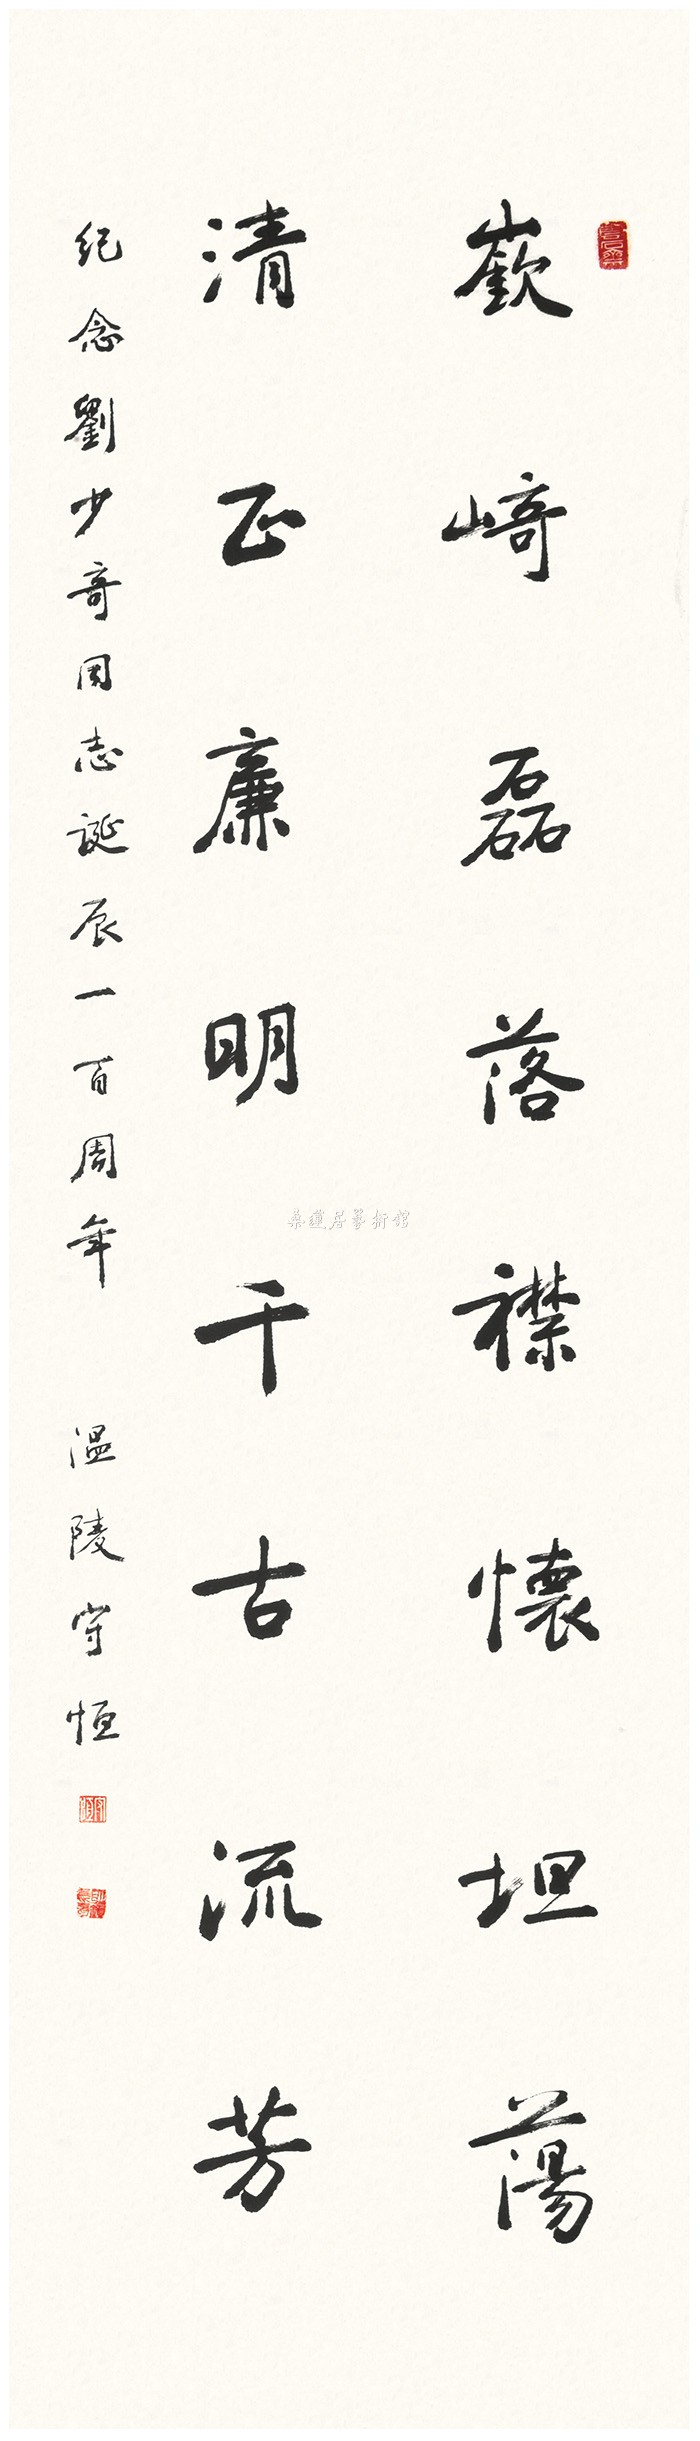 嶔崎磊落襟懷坦蕩
清正廉明千古流芳
紀念劉少奇同志誕辰一百周年 溫陵守恒
桑蓮居藝術館